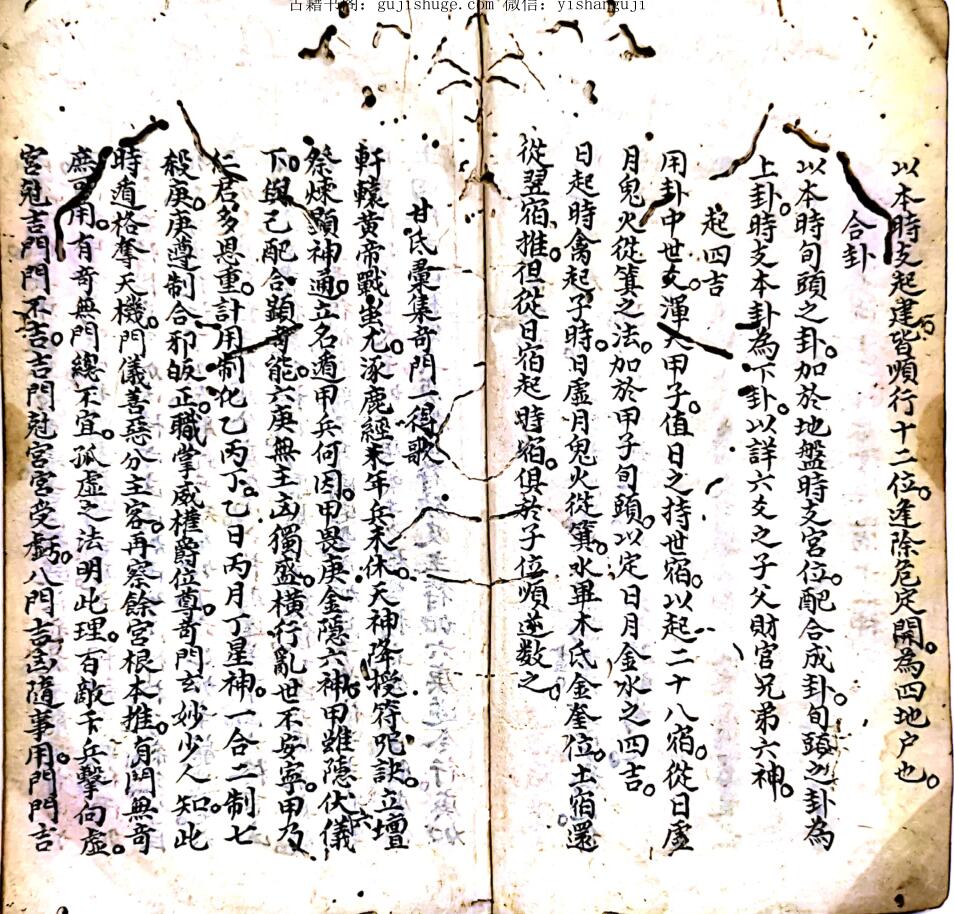 古籍书阁：gujishuge.com 微信：yishanguji
以本時支起建皆順行十二位逢除危定開為四地户也
合卦
以本時旬頭之卦加於地盤時支宮位配合成卦旬頭之卦為
上卦時支本卦為下卦以詳六爻之子父財官兄弟六神
起四吉
用卦中世爻渾天甲子值日之持世宿以起二十八宿從日虛
月鬼火從箕之法加於甲子旬頭以定日月金水之四吉
日起時禽起子時日虛月鬼火從箕水畢木氐金奎位土宿還
從翌宿推但從日宿起時宿俱於子位順逆数之
甘氏彙集奇門一得歌
軒轅黃帝戰蚩尤涿鹿經來年兵未休天神降授符咒訣立壇
祭煉顯神通立名遁甲兵何因甲畏庚金隱六神甲雖隱伏六儀
下與己配合顯奇能六庚無主凶獨盛橫行亂世不安寧甲乃
仁君多恩重計用制化乙丙丁乙日丙月丁星神一合二制七
殺庚庚遵制合邪皈正職掌威權爵位尊奇門玄妙少人知此
時遁格奪天機門儀善惡分主客再察餘宮根本推有門無奇
庶可用有奇無門總不宜孤虛之法明此理百敵千兵擊向虛
宮尅吉門門不吉吉門尅宮宮受虧八門吉凶隨事用門門吉